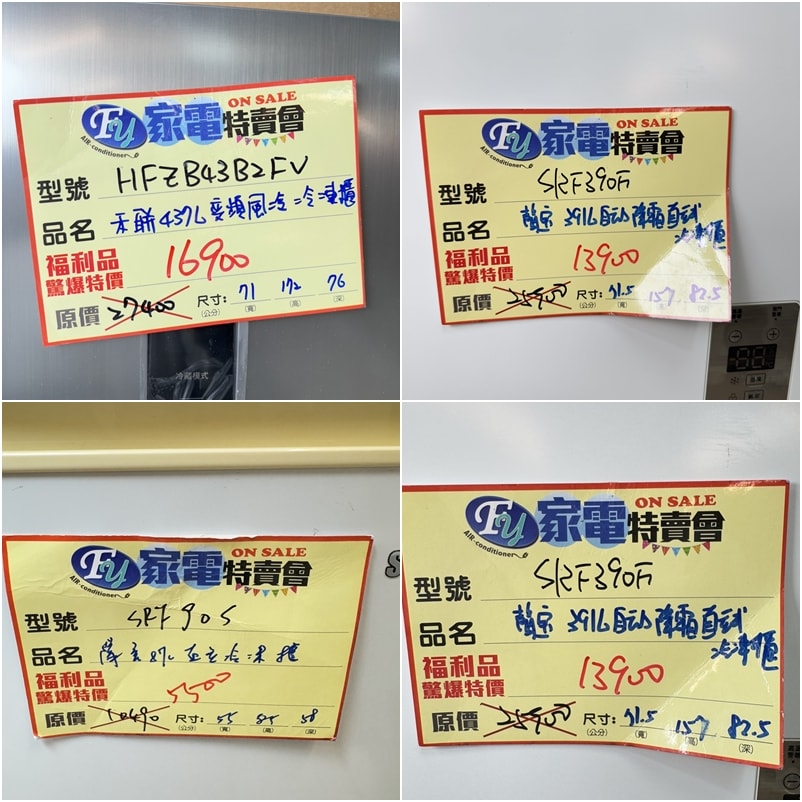 FY 家電特賣會 ON SALE
AIR-conditioner
型號 HFZB43B2FV
品名 禾聯437L變頻風冷
福利品 驚爆特價 16900
原價 27400 尺寸:(公分) 71(寬) 172(高) 76(深)
冷藏模式
FY 家電特賣會 ON SALE
AIR-conditioner
型號 SRF390F
品名 391L自动除霜直立式
冷凍櫃
福利品 驚爆特價 13900
原價 25900 尺寸:(公分) 71.5(寬) 157 82.5
FY 家電特賣會 ON SALE
AIR-conditioner
型號 SRF90S
品名 87L直立冷凍櫃
福利品 驚爆特價 5500
原價 10490 尺寸:(公分) 55(寬) 85(高) 58(深)
S
FY 家電特賣會 ON SALE
AIR-conditioner
型號 SRF390F
品名 391L自动除霜直立式
冷凍櫃
福利品 驚爆特價 13900
原價 25900 尺寸:(公分) 71.5(寬) 157(高) 82.5(深)